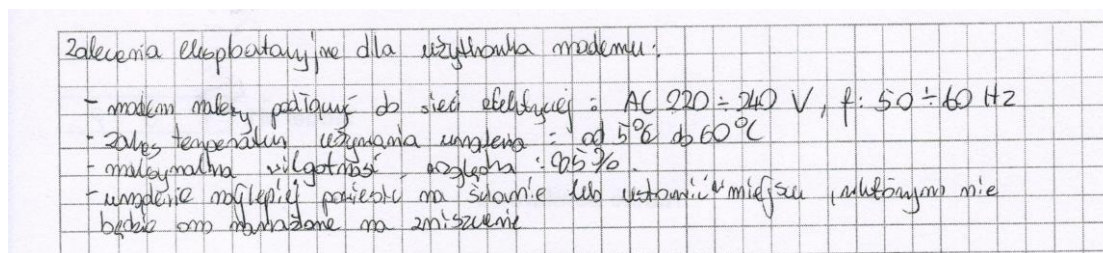 Zalecenia eksploatacyjne dla użytkownika modemu:
- modem należy podłączyć do sieci elektrycznej : AC 220 ÷ 240 V, f: 50 ÷ 60 Hz
- zakres temperatur używania urządzenia : od 5°C do 60°C
- maksymalna wilgotność względna : 85%.
- urządzenie najlepiej powiesić na ścianie lub ustawić w miejscu , w którym nie
będzie ono narażone na zniszczenie